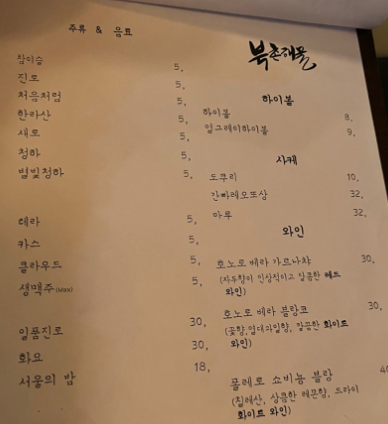 주류 & 음료
참이슬 5,
진로 5,
처음처럼 5,
한라산 5,
새로 5,
청하 5,
별빛청하 5,
테라 5,
카스 5,
클라우드 5,
생맥주(Max) 5,
일품진로 30,
화요 30,
서울의 밤 18,
북촌해물
하이볼
하이볼 8,
얼그레이하이볼 9,
사케
도쿠리 10,
간빠레오또상 32,
마루 32,
와인
호노로 베라 가르나챠 30,
(자두향이 인상적이고 달콤한 레드
와인)
호노로 베라 블랑코 30,
(꽃향,열대과일향, 깔끔한 화이트
와인)
몰레로 쇼비뇽 블랑
(칠레산, 상큼한 레몬향, 드라이
화이트 와인)